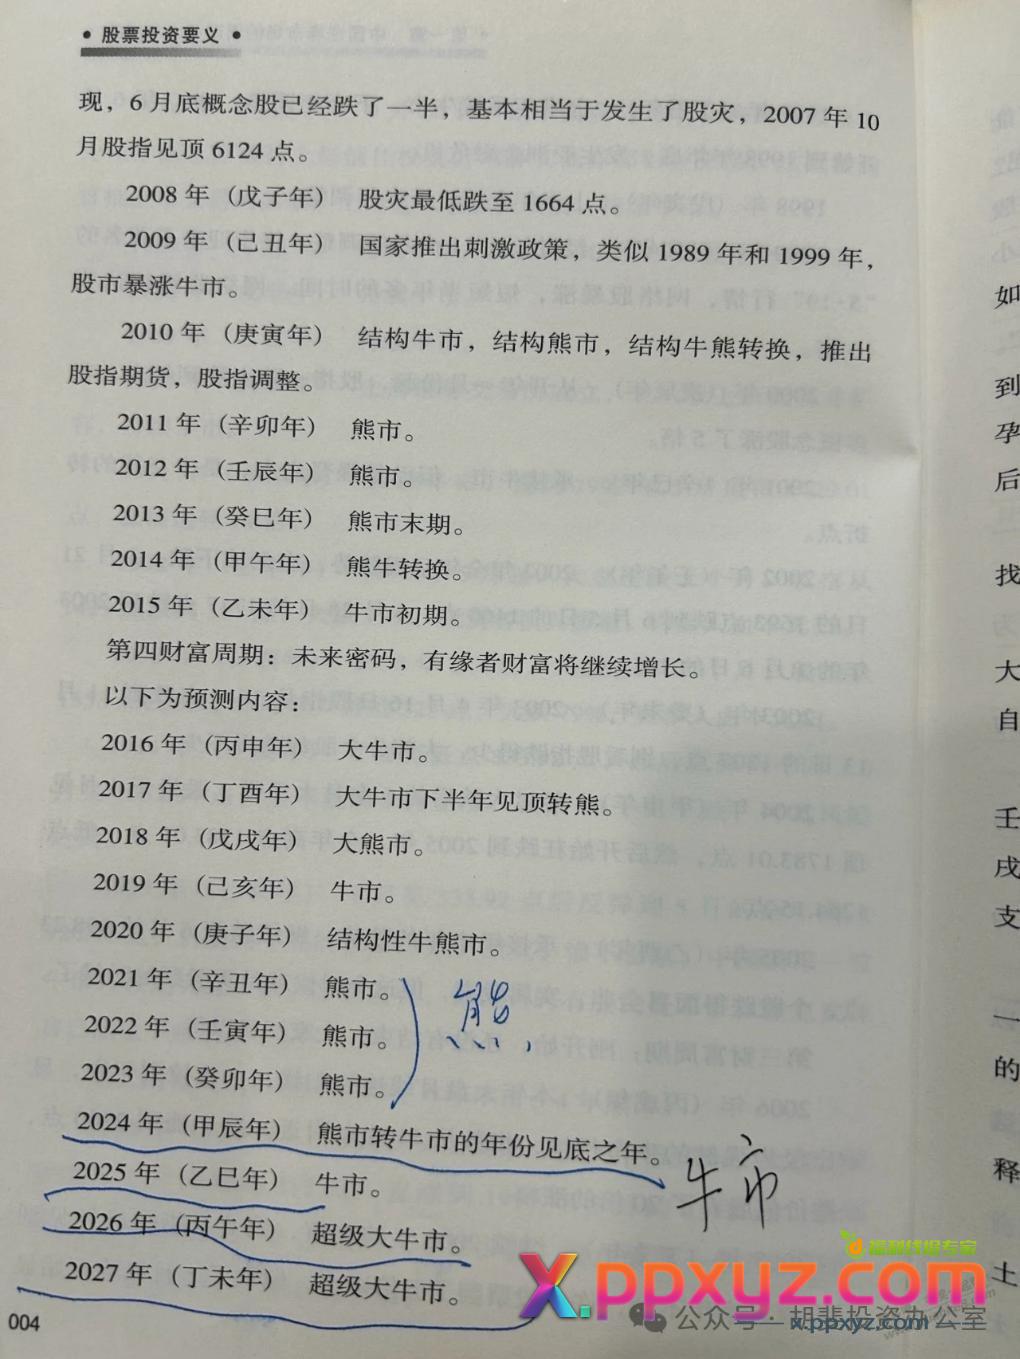 • 股票投资要义 •
现，6 月底概念股已经跌了一半，基本相当于发生了股灾，2007 年 10
月股指见顶 6124 点。
2008 年（戊子年） 股灾最低跌至 1664 点。
2009 年（己丑年） 国家推出刺激政策，类似 1989 年和 1999 年，
股市暴涨牛市。
2010 年（庚寅年） 结构牛市，结构熊市，结构牛熊转换，推出
股指期货，股指调整。
2011 年（辛卯年） 熊市。
2012 年（壬辰年） 熊市。
2013 年（癸巳年） 熊市末期。
2014 年（甲午年） 熊牛转换。
2015 年（乙未年） 牛市初期。
第四财富周期：未来密码，有缘者财富将继续增长。
以下为预测内容：
2016 年（丙申年） 大牛市。
2017 年（丁酉年） 大牛市下半年见顶转熊。
2018 年（戊戌年） 大熊市。
2019 年（己亥年） 牛市。
2020 年（庚子年） 结构性牛熊市。
2021 年（辛丑年） 熊市。
2022 年（壬寅年） 熊市。
熊
2023 年（癸卯年） 熊市。
2024 年（甲辰年） 熊市转牛市的年份见底之年。
2025 年（乙巳年） 牛市。
牛市
2026 年（丙午年） 超级大牛市。
2027 年（丁未年） 超级大牛市。
004
如
到
孕
后
找
大
自
壬
戌
支
一
的
释
土
福利线报专家
X.ppxyz.com
公众号 · 胡斐投资办公室
x.ppxyz.com